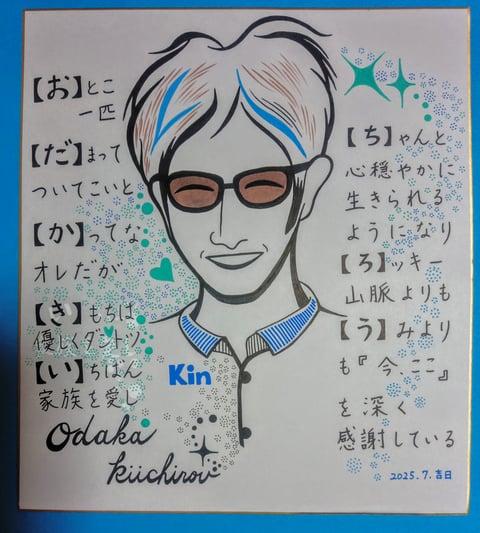 【お】とこ
一匹
【だ】まって
ついてこいと
【か】ってな
オレだが
【き】もちは
優しくダントツ
【い】ちばん
家族を愛し
【ち】ゃんと
心穏やかに
生きられる
ようになり
【ろ】ッキー
山脈よりも
【う】みより
も『今、ここ』
を深く
感謝している
Kin
Odaka
Kiichirou
2025.7.吉日